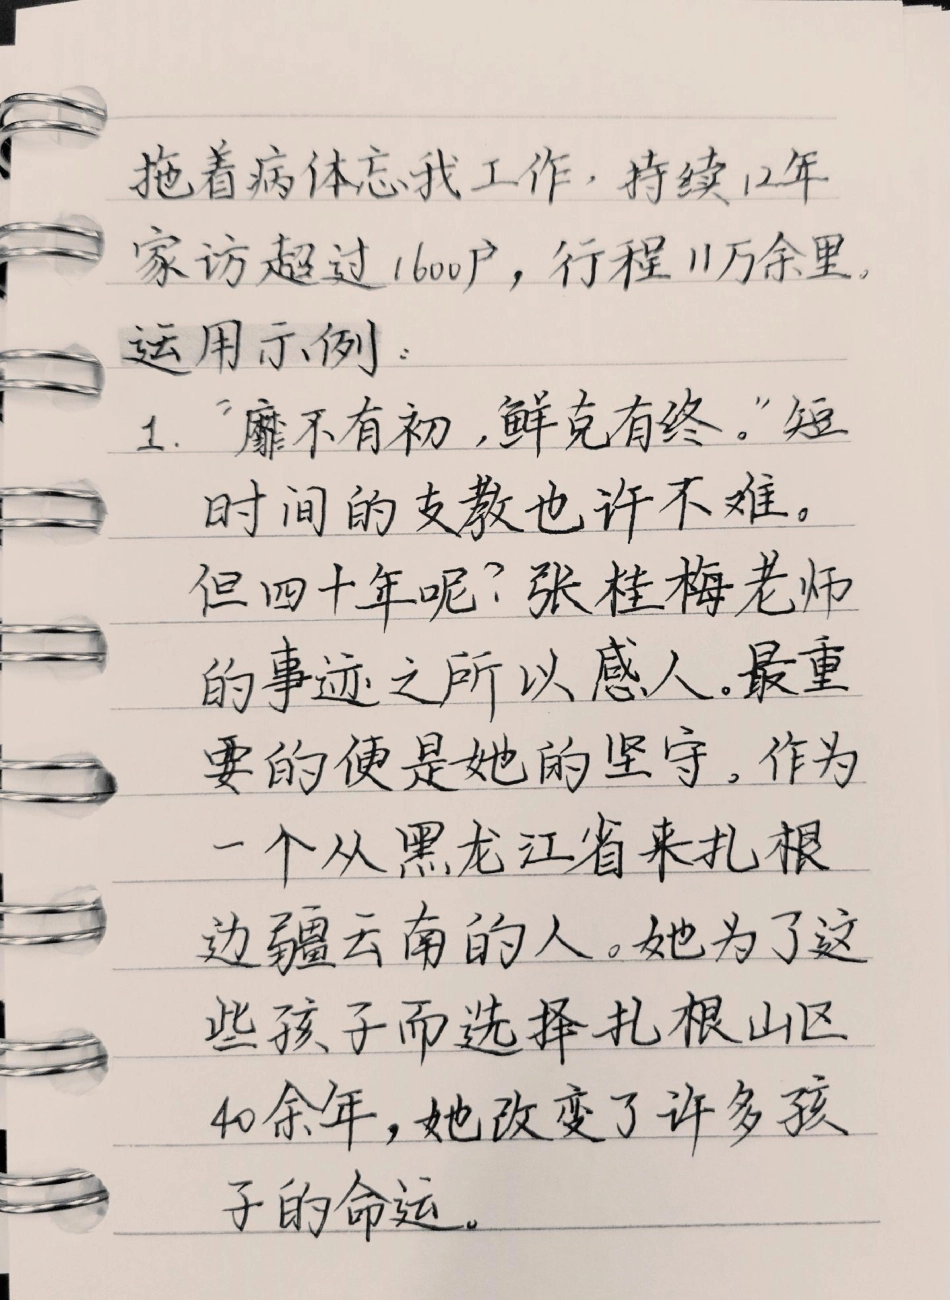 拖着病体忘我工作，持续12年
家访超过1600户，行程11万余里。
运用示例：
1. “靡不有初，鲜克有终。”短
时间的支教也许不难。
但四十年呢？张桂梅老师
的事迹之所以感人。最重
要的便是她的坚守。作为
一个从黑龙江省来扎根
边疆云南的人。她为了这
些孩子而选择扎根山区
40余年，她改变了许多孩
子的命运。